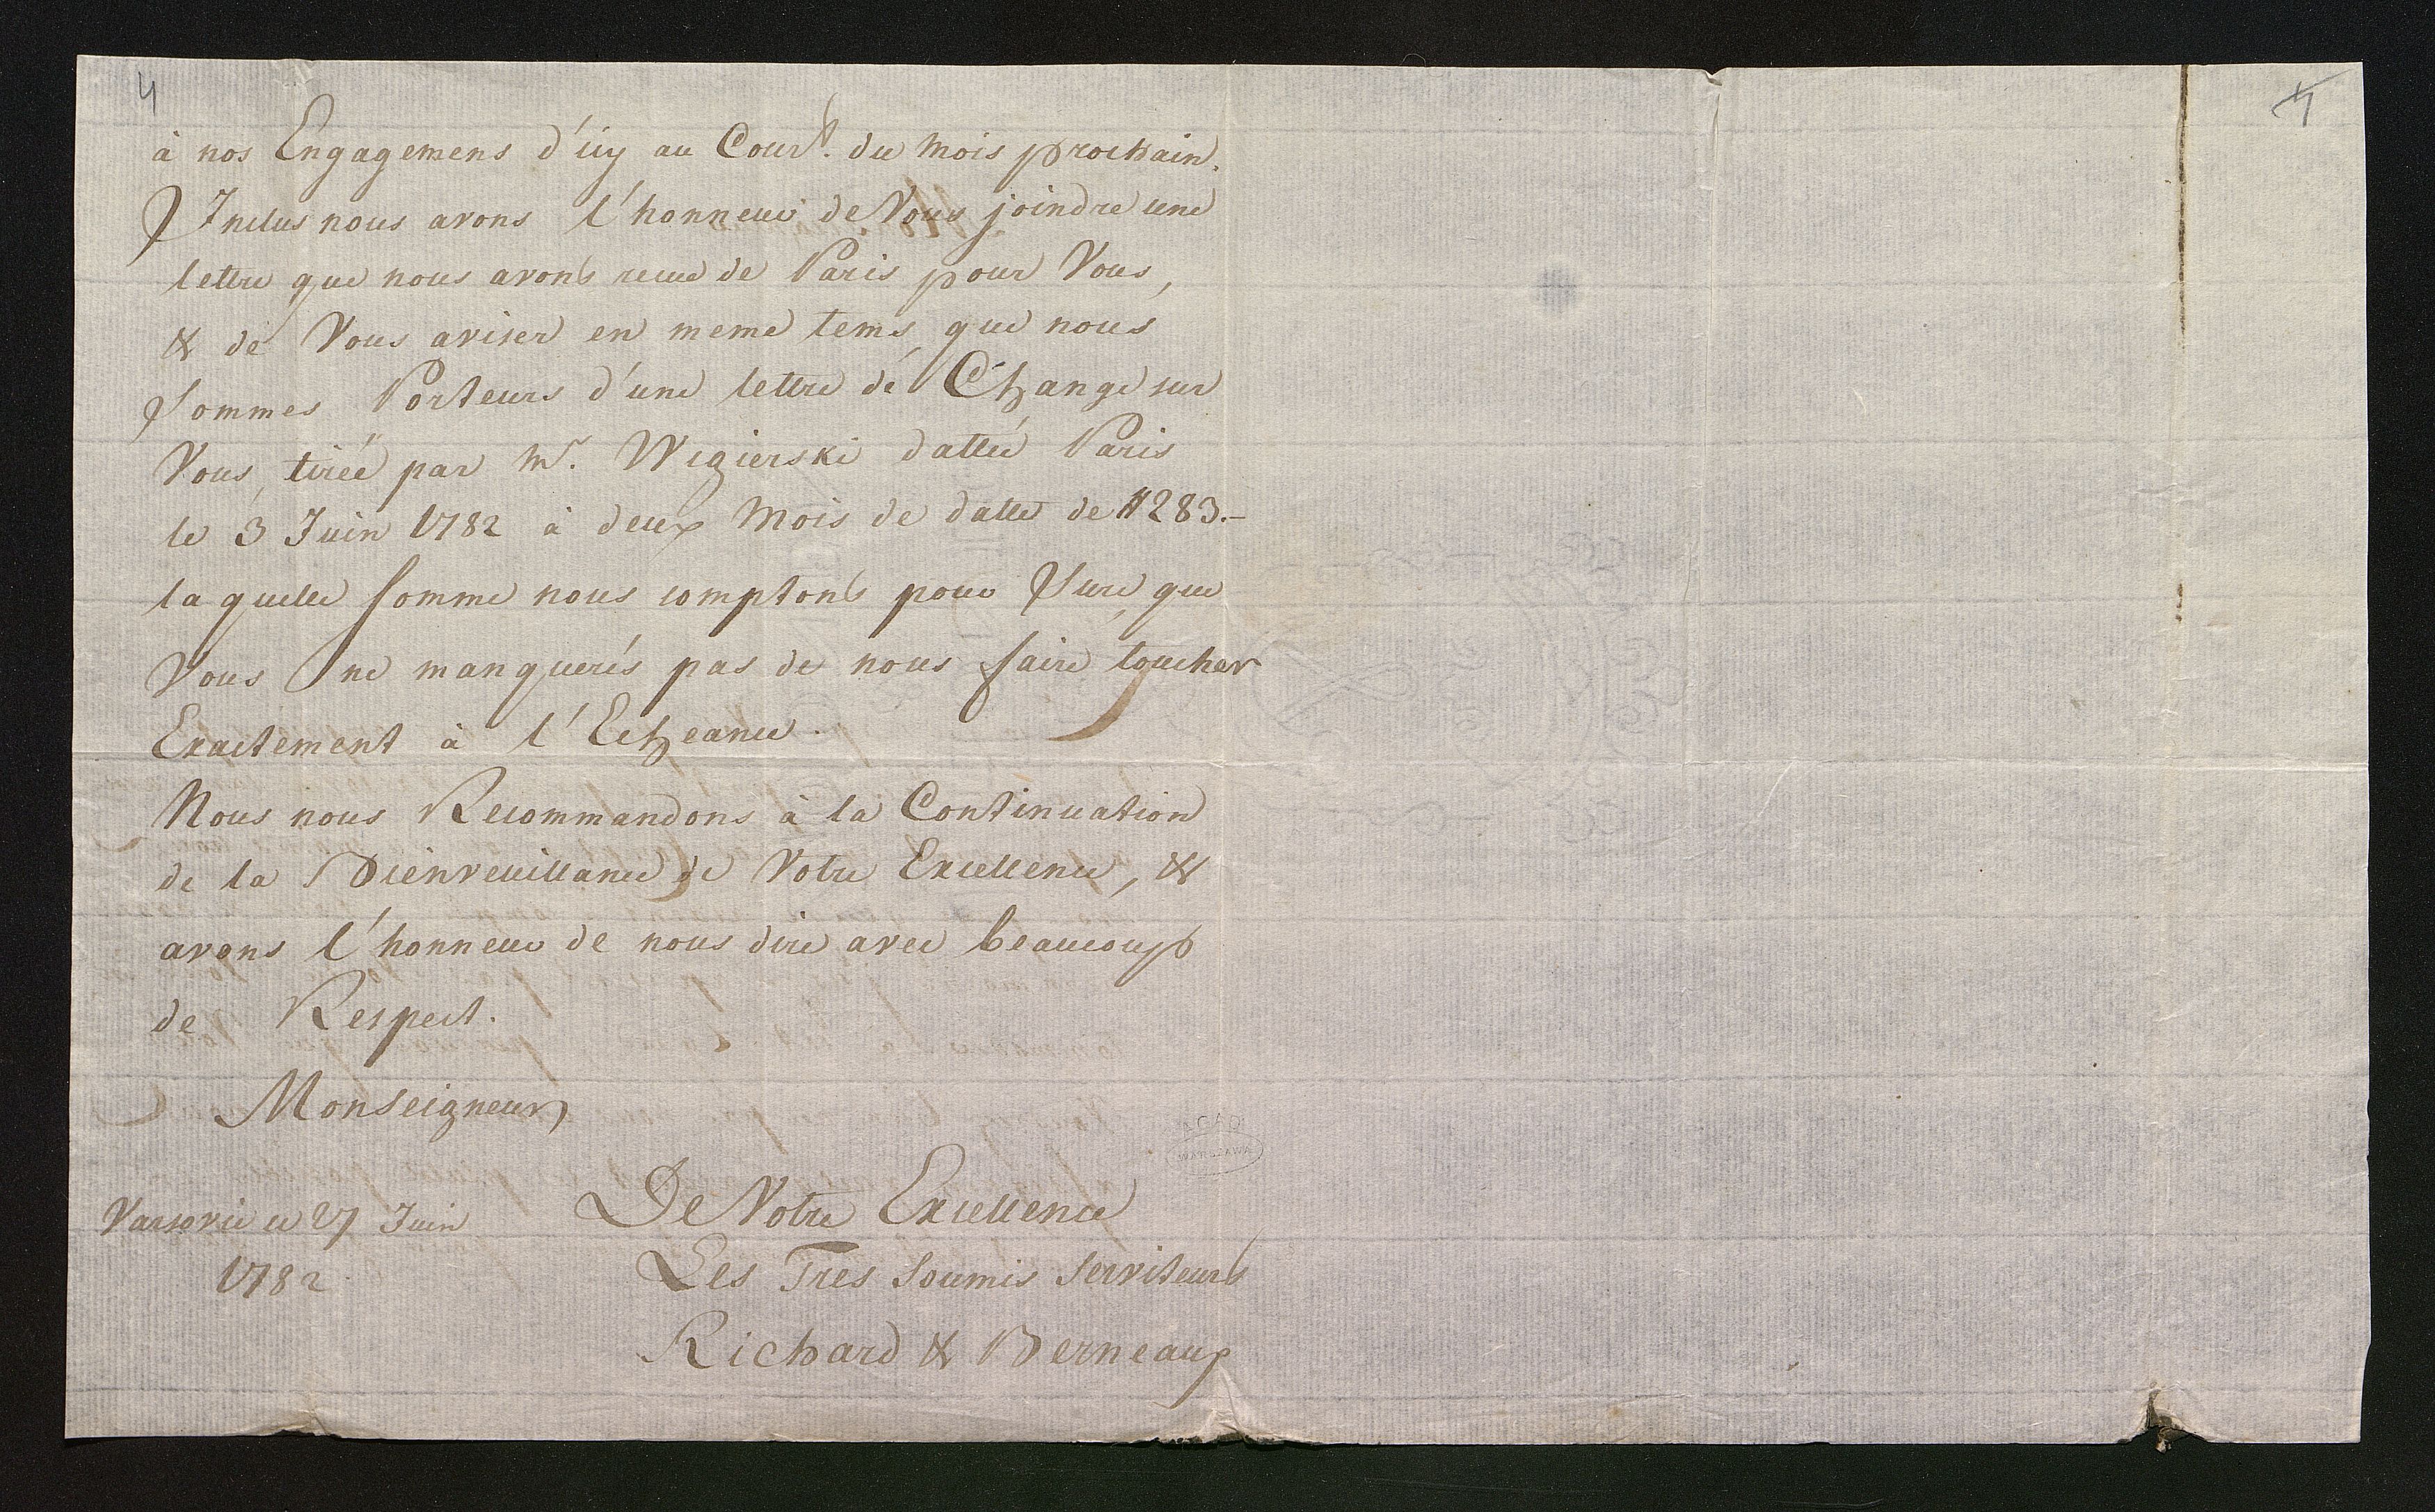 4
4
à nos Engagemens d'icy au Cour.t du mois prochain.
Inclus nous avons l'honneur de Vous joindre une
lettre que nous avons recue de Paris pour Vous,
& de Vous aviser en meme tems, que nous
sommes Porteurs d'une lettre de Change sur
Vous, tirée par Mr. Wigierski dattée Paris
le 3 Juin 1782 à deux Mois de datte de # 283.-
la quelle somme nous comptons pour sure, que
Vous ne manquerés pas de nous faire toucher
Exactement à l'Echeance.
Nous nous Recommandons à la Continuation
de la Bienveuillance de Votre Excellence, &
avons l'honneur de nous dire avec beaucoup
de Respect.
Monseigneur
De Votre Excellence
Varsovie ce 27 Juin
1782
Les Tres Soumis Serviteurs
Richard & Berneaux
AGAD
WARSZAWA